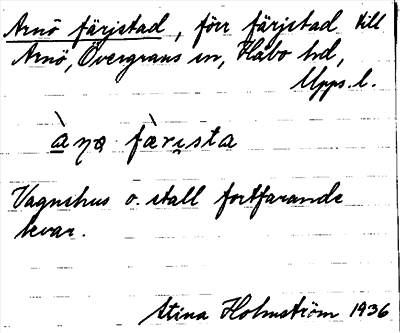 Arnö färjstad, förr färjstad till
Arnö, Övergrans sn, Håbo hd,
Upps. l.
à̱ɳə fὰrı̨sta
Vagnshus o. stall fortfarande
kvar.
Stina Holmström 1936